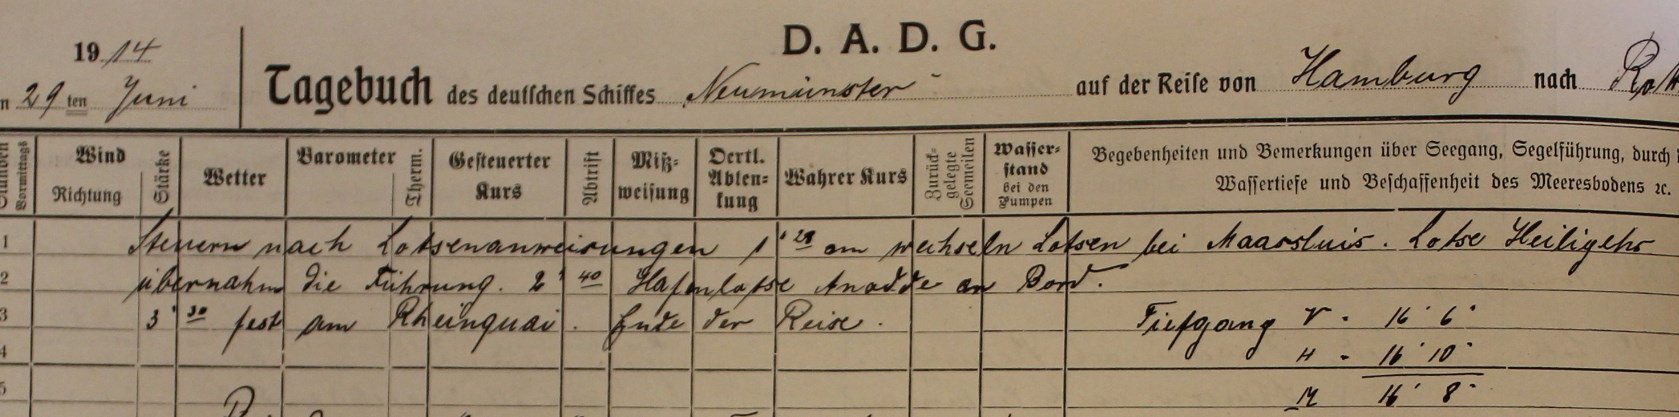 D. A. D. G.
1914
29 ten Juni
Tagebuch des deutschen Schiffes Neumünster auf der Reise von Hamburg nach
Stunden Vormittags
Wind Richtung Stärke
Wetter
Barometer Therm.
Gesteuerter Kurs
Abtrift
Mißweisung
Oertl. Ablenkung
Wahrer Kurs
Zurückgelegte Seemeilen
Wasserstand bei den Pumpen
Begebenheiten und Bemerkungen über Seegang, Segelführung, durch
Wassertiefe und Beschaffenheit des Meeresbodens ꝛc.
1 Steuern nach Lotsenanweisungen 1 28 am wechseln Lotsen bei Maassluis. Lotse
2 übernahm die Führung. 2 40 Hafenlotse an Bord.
3 3 30 fest am Rheinquai. Ende der Reise. Tiefgang V. 16' 6"
4 H - 16' 10"
5 M 16' 8"